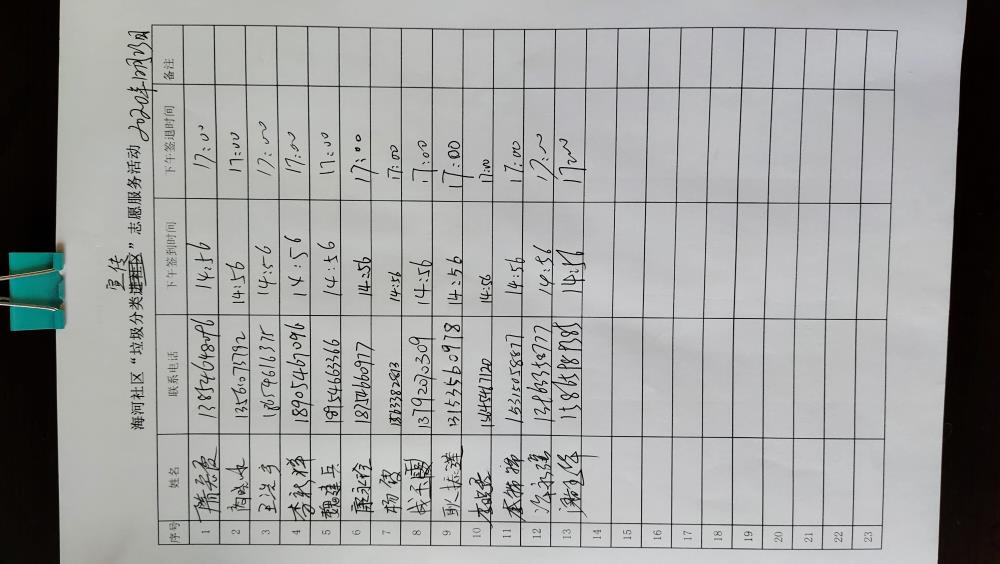 海河社区“垃圾分类宣传”志愿服务活动 2020年12月23日
序号 姓名 联系电话 下午签到时间 下午签退时间 备注
1 13854648096 14:56 17:00
2 13561073792 14:56 17:00
3 14:56 17:00
4 李新祥 18905467096 14:56 17:00
5 魏建兵 18954663366 14:56 17:00
6 康永玲 18754660977 14:56 17:00
7 杨 14:56 17:00
8 13792070309 14:56 17:00
9 耿振莲 14:56 17:00
10 14:56 17:00
11 15315058877 14:56 17:00
12 许永强 14:56 17:00
13 15865989385 14:56 17:00
14
15
16
17
18
19
20
21
22
23